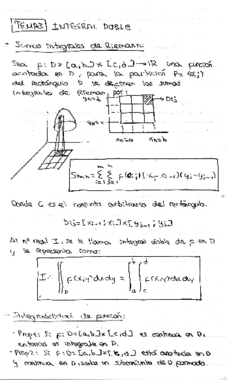 TEMA3 INTEGRAL DOBLE
- Sumas Integrales de Riemann:
Sea f: D = [a,b] x [c,d] → IR una función
acotada en D, para la partición P =
del rectángulo D se definen las sumas
integrales de Rieman por:
Dij
Smn = Σ Σ f(cij) (xi - xi-1) (yj - yj-1)
Donde C es el conjunto arbitrario del rectángulo.
Dij = [xi-1; xi] x [yj-1; yj]
Al nº real I, se le llama integral doble de f en D
y se representa como:
I = ∬D f(x,y) dx dy = ∫∫ f(x,y) dx dy
- Integrabilidad de función:
· Prop1: Si f: D = [a,b] x [c,d] es continua en D,
entonces es integrable en D.
· Prop2: Si f: D = [a,b] x [c,d] está acotada en D
y continua en D, salvo en